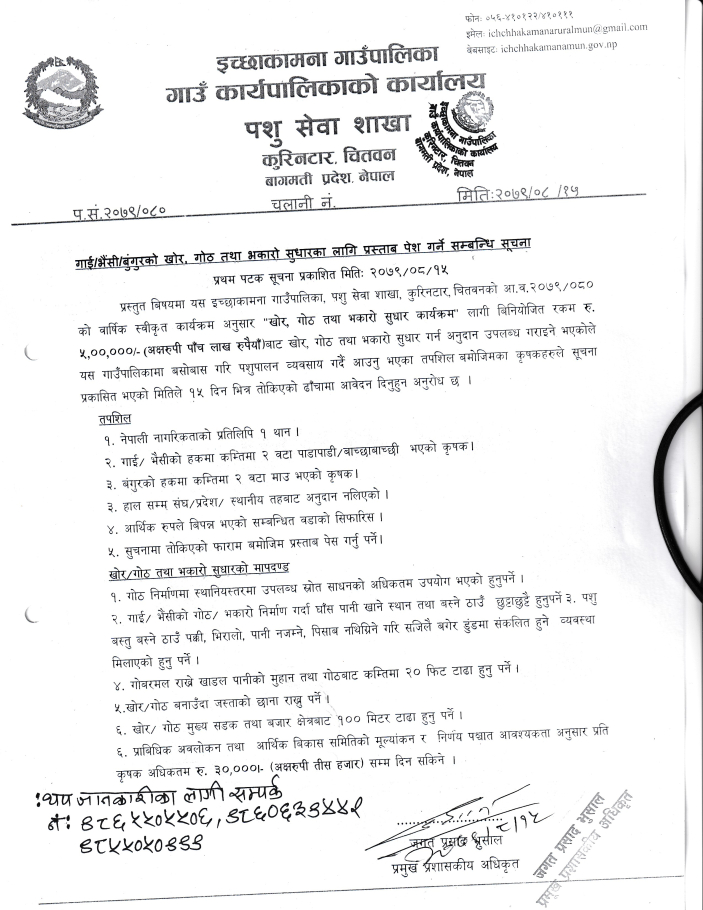 फोनः ०५६-४१०१२२/४१०१११
इमेलः ichchhakamanaruralmun@gmail.com
वेबसाइटः ichchhakamanamun.gov.np
इच्छाकामना गाउँपालिका
गाउँ कार्यपालिकाको कार्यालय
पशु सेवा शाखा
कुरिनटार, चितवन
बागमती प्रदेश, नेपाल
इच्छाकामना गाउँपालिका
गाउँ कार्यपालिकाको कार्यालय
कुरिनटार, चितवन
बागमती प्रदेश, नेपाल
प.सं.२०७९/०८०
चलानी नं.
मितिः२०७९/०८ /१५
गाई/भैंसी/बुंगुरको खोर, गोठ तथा भकारो सुधारका लागि प्रस्ताब पेश गर्ने सम्बन्धि सूचना
प्रथम पटक सूचना प्रकाशित मितिः २०७९/०८/१५
प्रस्तुत बिषयमा यस इच्छाकामना गाउँपालिका, पशु सेवा शाखा, कुरिनटार,चितवनको आ.व.२०७९/०८०
को बार्षिक स्वीकृत कार्यक्रम अनुसार "खोर, गोठ तथा भकारो सुधार कार्यक्रम" लागी बिनियोजित रकम रु.
५,००,०००/- (अक्षरुपी पाँच लाख रुपैयाँ)बाट खोर, गोठ तथा भकारो सुधार गर्न अनुदान उपलब्ध गराइने भएकोले
यस गाउँपालिकामा बसोबास गरि पशुपालन व्यवसाय गर्दै आउनु भएका तपशिल बमोजिमका कृषकहरुले सूचना
प्रकासित भएको मितिले १५ दिन भित्र तोकिएको ढाँचामा आवेदन दिनुहुन अनुरोध छ ।
तपशिल
१. नेपाली नागरिकताको प्रतिलिपि १ थान ।
२. गाई/ भैंसीको हकमा कम्तिमा २ वटा पाडापाडी/बाच्छाबाच्छी भएको कृषक।
३. बंगुरको हकमा कम्तिमा २ वटा माउ भएको कृषक।
३. हाल सम्म संघ/प्रदेश/ स्थानीय तहबाट अनुदान नलिएको ।
४. आर्थिक रुपले बिपन्न भएको सम्बन्धित वडाको सिफारिस ।
५. सुचनामा तोकिएको फाराम बमोजिम प्रस्ताब पेस गर्नु पर्ने।
खोर/गोठ तथा भकारो सुधारको मापदण्ड
१. गोठ निर्माणमा स्थानियस्तरमा उपलब्ध स्रोत साधनको अधिकतम उपयोग भएको हुनुपर्ने ।
२. गाई/ भैंसीको गोठ/ भकारो निर्माण गर्दा घाँस पानी खाने स्थान तथा बस्ने ठाउँ छुट्टाछुट्टै हुनुपर्ने ३. पशु
बस्तु बस्ने ठाउँ पक्की, भिरालो, पानी नजम्ने, पिसाब नथिग्रिने गरि सजिलै बगेर डुंडमा संकलित हुने व्यवस्था
मिलाएको हुनु पर्ने ।
४. गोबरमल राख्ने खाडल पानीको मुहान तथा गोठबाट कम्तिमा २० फिट टाढा हुनु पर्ने ।
५.खोर/गोठ बनाउँदा जस्ताको छाना राख्नु पर्ने ।
६. खोर/ गोठ मुख्य सडक तथा बजार क्षेत्रबाट १०० मिटर टाढा हुनु पर्ने ।
६. प्राबिधिक अवलोकन तथा आर्थिक बिकास समितिको मूल्यांकन र निर्णय पश्चात आवश्यकता अनुसार प्रति
कृषक अधिकतम रु. ३०,०००।- (अक्षरुपी तीस हजार) सम्म दिन सकिने ।
:थप जानकारीका लागी सम्पर्क
नं: ९८६५५०५५०६, ९८६०६३९४४१
९८५५०५०९३३
जगत प्रसाद भुसाल
प्रमुख प्रशासकीय अधिकृत
जगत प्रसाद भुसाल
प्रमुख प्रशासकीय अधिकृत